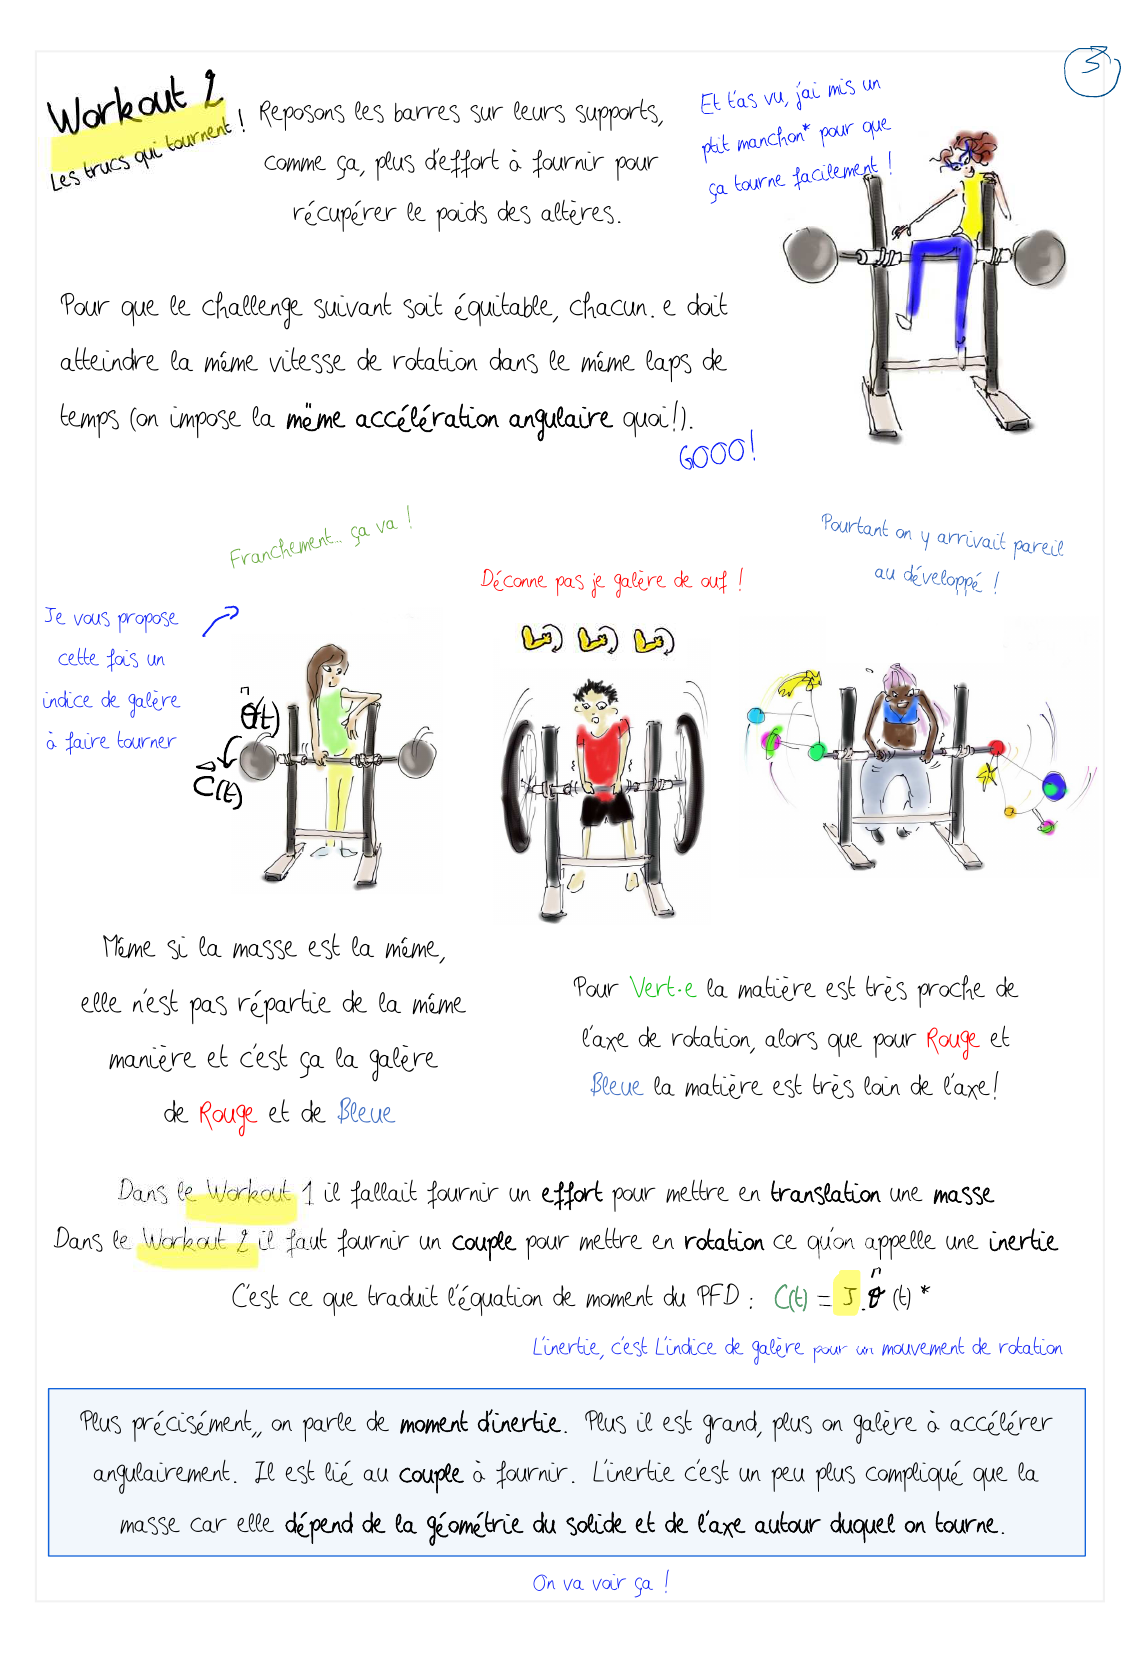 3
Workout 2
Les trucs qui tournent !
Reposons les barres sur leurs supports,
comme ça, plus d'effort à fournir pour
récupérer le poids des altères.
Et t'as vu, j'ai mis un
ptit manchon* pour que
ça tourne facilement !
Pour que le challenge suivant soit équitable, chacun.e doit
atteindre la même vitesse de rotation dans le même laps de
temps (on impose la même accélération angulaire quoi!).
GOOO!
Franchement... ça va !
Déconne pas je galère de ouf !
Pourtant on y arrivait pareil
au développé !
Je vous propose
cette fois un
indice de galère
à faire tourner
θ̈(t)
C(t)
Même si la masse est la même,
elle n'est pas répartie de la même
manière et c'est ça la galère
de Rouge et de Bleue
Pour Vert·e la matière est très proche de
l'axe de rotation, alors que pour Rouge et
Bleue la matière est très loin de l'axe!
Dans le Workout 1 il fallait fournir un effort pour mettre en translation une masse
Dans le Workout 2 il faut fournir un couple pour mettre en rotation ce qu'on appelle une inertie
C'est ce que traduit l'équation de moment du PFD : C(t) = J.θ̈(t) *
L'inertie, c'est L'indice de galère pour un mouvement de rotation
Plus précisément,, on parle de moment d'inertie. Plus il est grand, plus on galère à accélérer
angulairement. Il est lié au couple à fournir. L'inertie c'est un peu plus compliqué que la
masse car elle dépend de la géométrie du solide et de l'axe autour duquel on tourne.
On va voir ça !